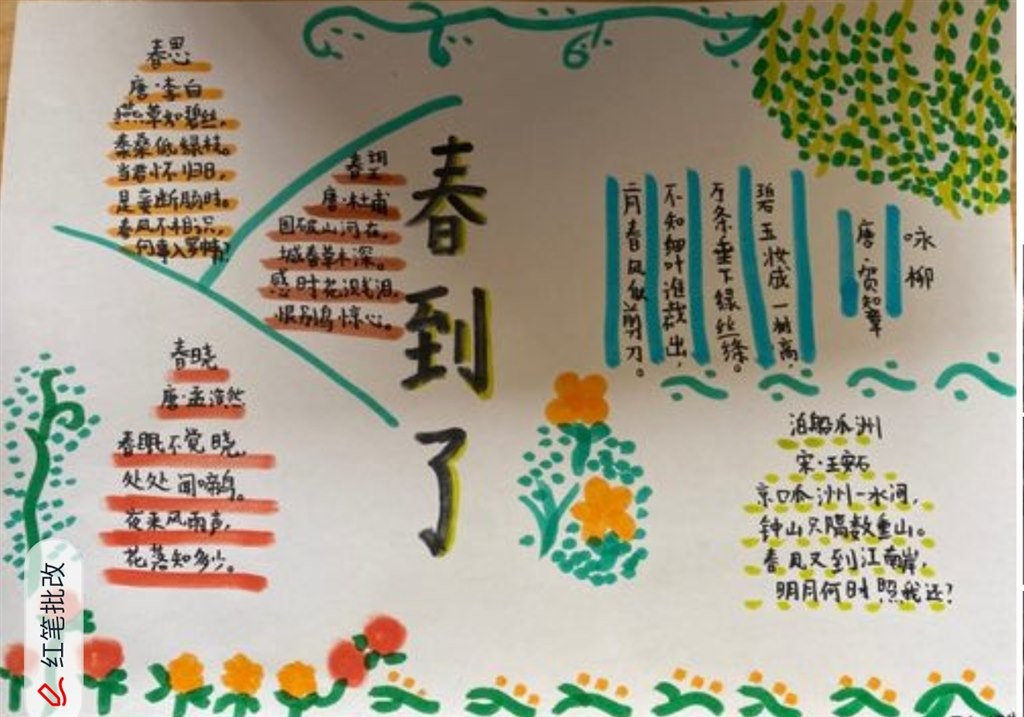 春思
唐·李白
燕草如碧丝，
秦桑低绿枝。
当君怀归日，
是妾断肠时。
春风不相识，
何事入罗帏？
春望
唐·杜甫
国破山河在，
城春草木深。
感时花溅泪，
恨别鸟惊心。
春到了
咏柳
唐·贺知章
碧玉妆成一树高，
万条垂下绿丝绦。
不知细叶谁裁出，
二月春风似剪刀。
春晓
唐·孟浩然
春眠不觉晓，
处处闻啼鸟。
夜来风雨声，
花落知多少。
泊船瓜洲
宋·王安石
京口瓜洲一水间，
钟山只隔数重山。
春风又到江南岸，
明月何时照我还？
红笔批改